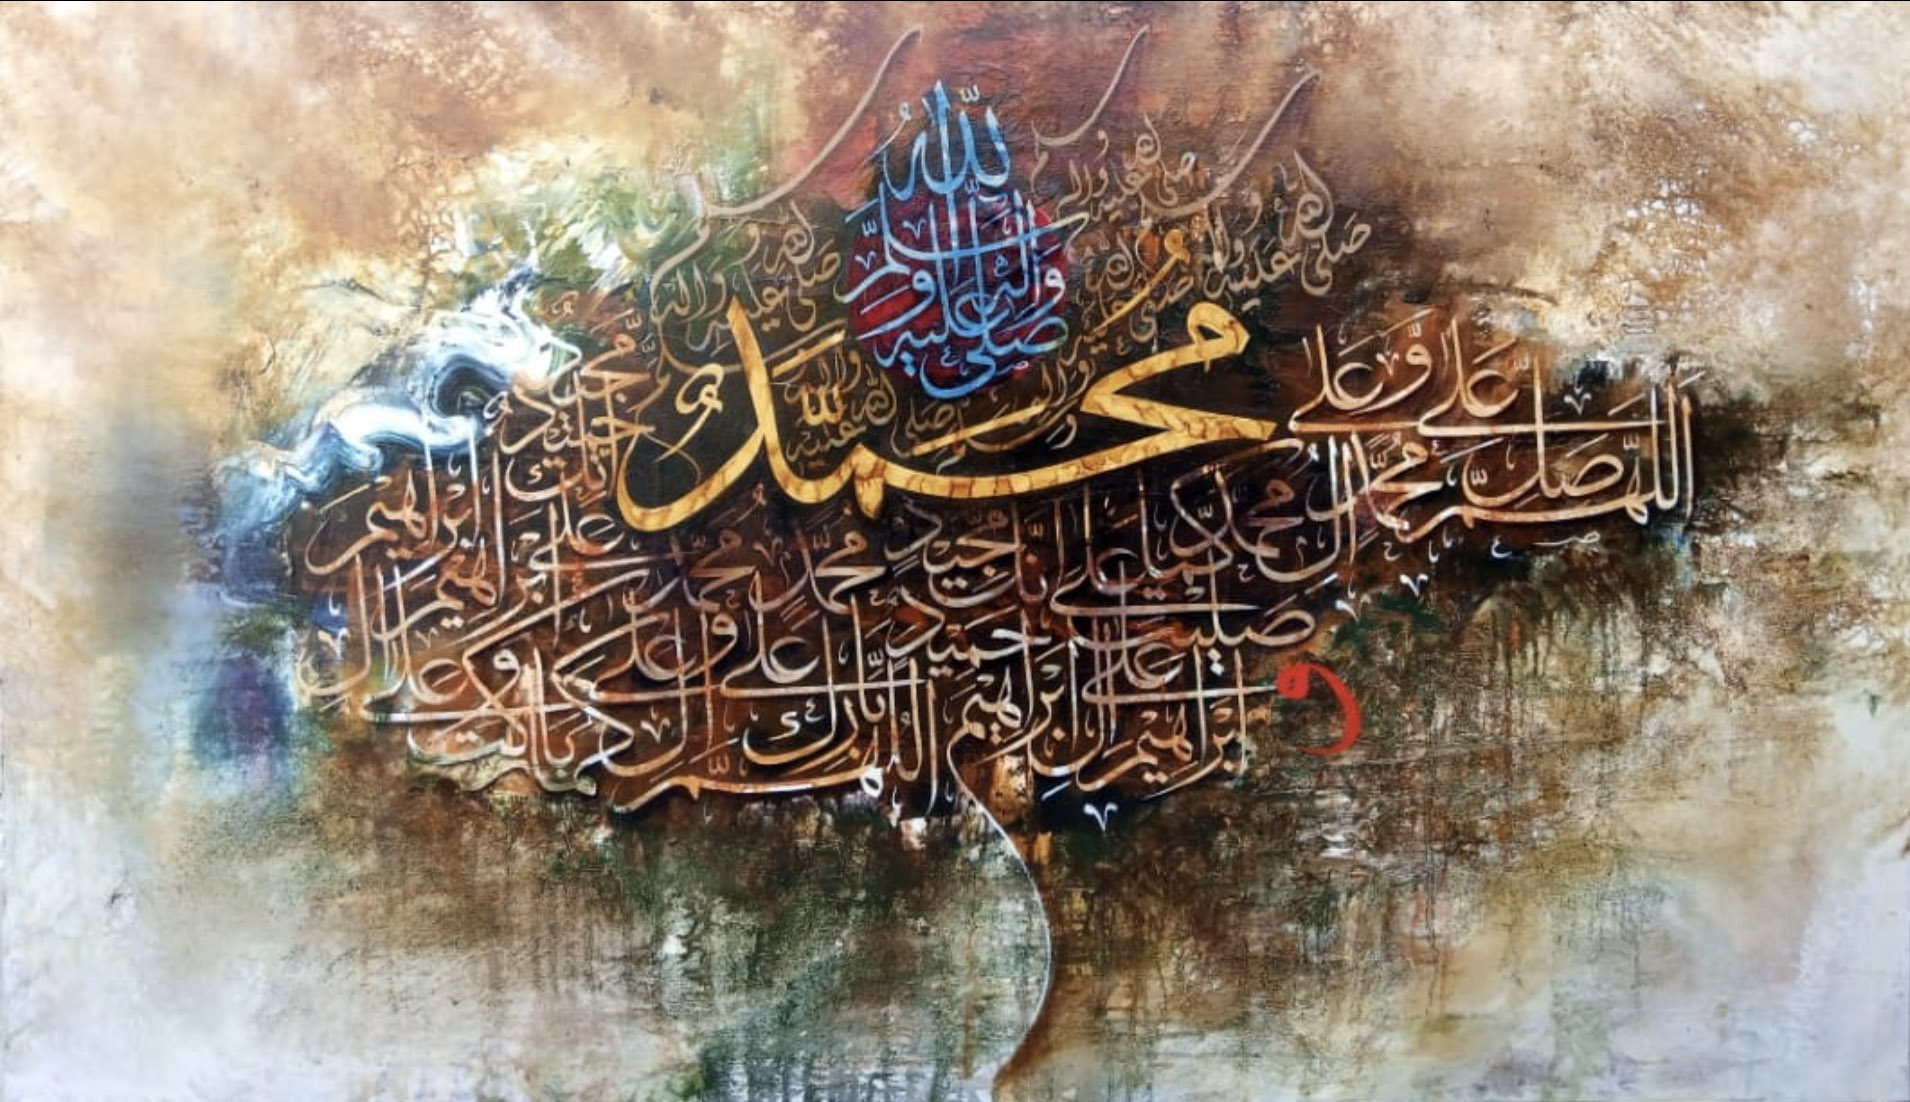 صلى الله عليه وآله وسلم
محمد
اللهم صل على محمد وعلى آل محمد كما صليت على إبراهيم وعلى آل إبراهيم إنك حميد مجيد
اللهم بارك على محمد وعلى آل محمد كما باركت على إبراهيم وعلى آل إبراهيم إنك حميد مجيد
صلى الله عليه وآله وسلم
صلى الله عليه وآله وسلم
صلى الله عليه وآله وسلم